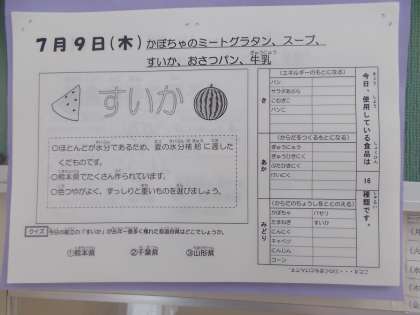 7月9日(木) かぼちゃのミートグラタン、スープ、
すいか、おさつパン、牛乳
すいか
○ほとんどが水分であるため、夏の水分補給に適した
くだものです。
○熊本県でたくさん作られています。
○色つやがよく、ずっしりと重いものを選びましょう。
クイズ 今日の給食の「すいか」が去年一番多く穫れた都道府県はどこでしょうか。
①熊本県 ②千葉県 ③山形県
今日、使用している食品は 16 種類です。
き
(エネルギーのもとになる)
パン
サラダあぶら
こむぎこ
パンこ
あか
(からだをつくるもとになる)
ぎゅうにゅう
ぎゅうひきにく
ぶたひきにく
けいにく
みどり
(からだのちょうしをととのえる)
かぼちゃ パセリ
たまねぎ すいか
にんじん
キャベツ
にんにく
コーン